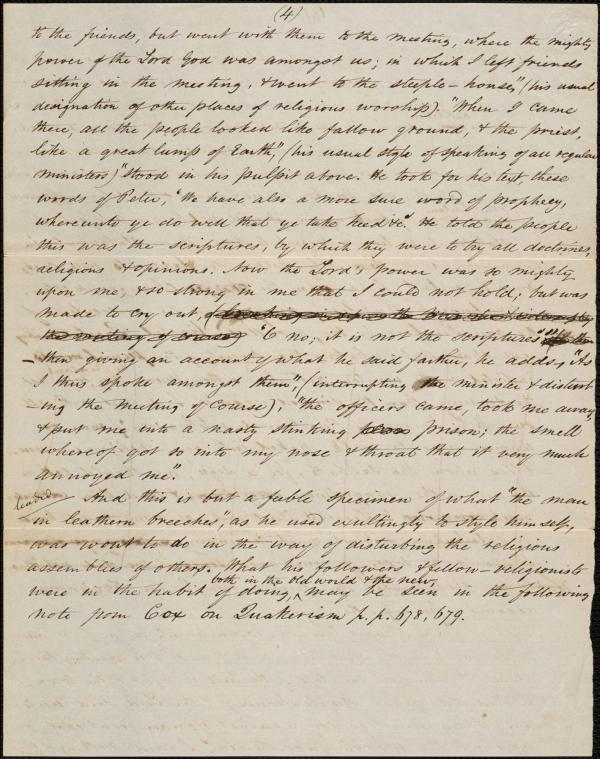 (4)
to the friends, but went with them to the meeting, where the mighty
power of the Lord God was amongst us; in which I left friends
sitting in the meeting, & went to the steeple-house," (his usual
designation of other places of religious worship). "When I came
there, all the people looked like fallow ground, & the priest,
like a great lump of Earth," (his usual style of speaking of all regular
ministers) "stood in his pulpit above. He took for his text, these
words of Peter, 'We have also a more sure word of prophecy,
whereunto ye do well that ye take heed &c'. He told the people
this was the scriptures, by which they were to try all doctrines,
religions & opinions. Now the Lord's power was so mighty
upon me, & so strong in me that I could not hold, but was
made to cry out,
the meeting of course) 'O no; it is not the scriptures'"
– then giving an account of what he said farther, he adds, "As
I thus spoke amongst them", (interrupting the minister & disturb
-ing the meeting of course), "the officers came, took me away,
& put me into a nasty stinking prison; the smell
whereof got so into my nose & throat that it very much
annoyed me".
leaded And this is but a feeble specimen of what "the man
in leathern breeches", as he used exultingly to style himself,
was wont to do in the way of disturbing the religious
assemblies of others. What his followers & fellow-religionists
both in the old world & the new,
were in the habit of doing, ^ may be seen in the following
note from Cox on Quakerism p.p. 678, 679.